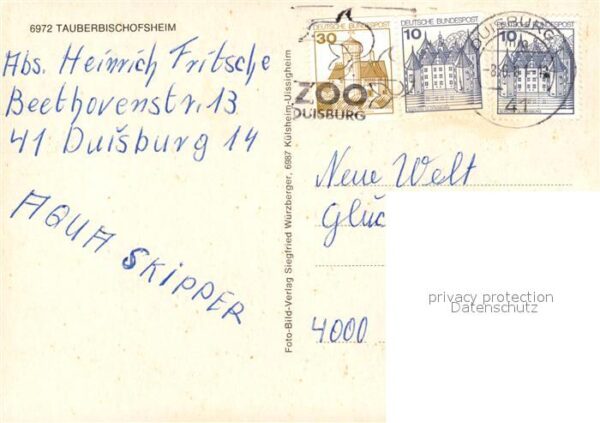 6972 TAUBERBISCHOFSHEIM
Abs. Heinrich Fritsche
Beethovenstr. 13
41 Duišburg 14
AQUA SKIPPER
Foto-Bild-Verlag Siegfried Würzberger, 6987 Külsheim-Uissigheim
30
DEUTSCHE BUNDESPOST
10
DEUTSCHE BUNDESPOST
10
ZOO
DUISBURG
DUISBURG
41
Neue Welt
Glüc
4000
privacy protection
Datenschutz